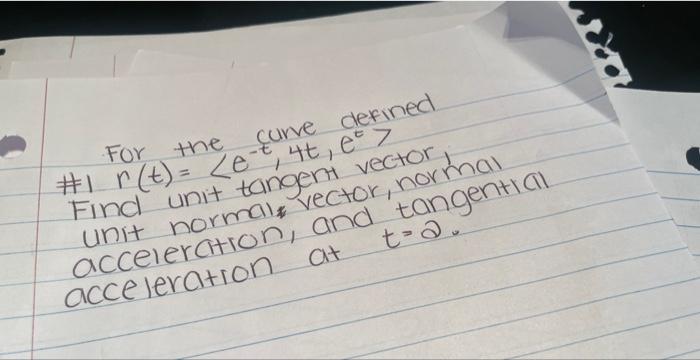 For the curve defined
#1 r(t) = <e^-t, 4t, e^t>
Find unit tangent vector,
unit normal vector, normal
acceleration, and tangential
acceleration at t=2.